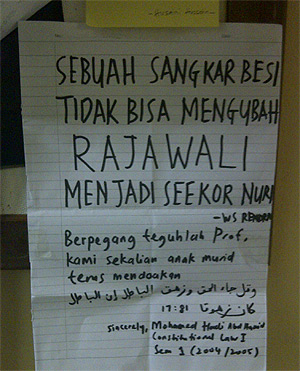 SEBUAH SANGKAR BESI
TIDAK BISA MENGUBAH
RAJAWALI
MENJADI SEEKOR NURI
- WS RENDRA
Berpegang teguhlah Prof,
kami sekalian anak murid
terus mendoakan
وقل جاء الحق وزهق الباطل إن الباطل
كان زهوقا 17:81
Sincerely, Mohamed Hadi Abd Hamid
Constitutional Law I
Sem 1 (2004/2005)